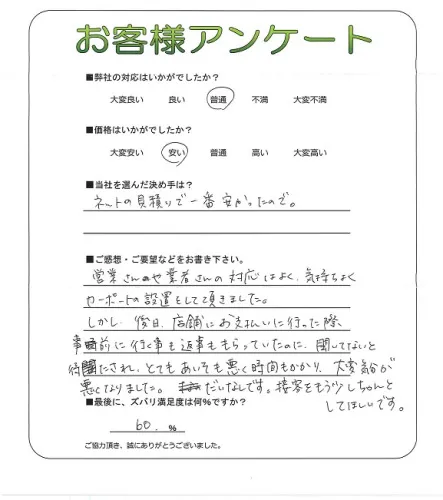 お客様アンケート
■弊社の対応はいかがでしたか?
大変良い 良い 普通 不満 大変不満
■価格はいかがでしたか?
大変安い 安い 普通 高い 大変高い
■当社を選んだ決め手は?
ネットの見積りで一番安かったので。
■ご感想・ご要望などをお書き下さい。
営業さんや業者さんの対応はよく、気持ちよく
カーポートの設置をして頂きました。
しかし、後日、店舗にお支払いに行った際、
事前に行く事も返事ももらっていたのに、聞いてないと
待たされ、とてもあいそも悪く時間もかかり、大変気分が
悪くなりました。だいなしです。接客をもう少しちゃんと
してほしいです。
■最後に、ズバリ満足度は何%ですか?
60. %
ご協力頂き、誠にありがとうございました。